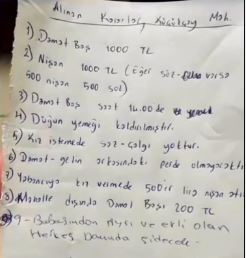 Alınan Kararlar Küçükköy Mah.
1) Damat Başı 1000 TL
2) Nişan 1000 TL (Eğer söz varsa
500 nişan 500 söz)
3) Damat Başı saat 14.00 de
4) Düğün yemeği kaldırılmıştır.
5) Kız istemede saz-çalgı yoktur.
6) Damat-gelin arkasındaki perde olmayacaktı
7) Yabancıya kız vermede 500'er lira nişan
8) Mahalle dışında Damat Başı 200 TL
9- Babasından Ayrı ve evli olan
Herkes Davında gidecek.